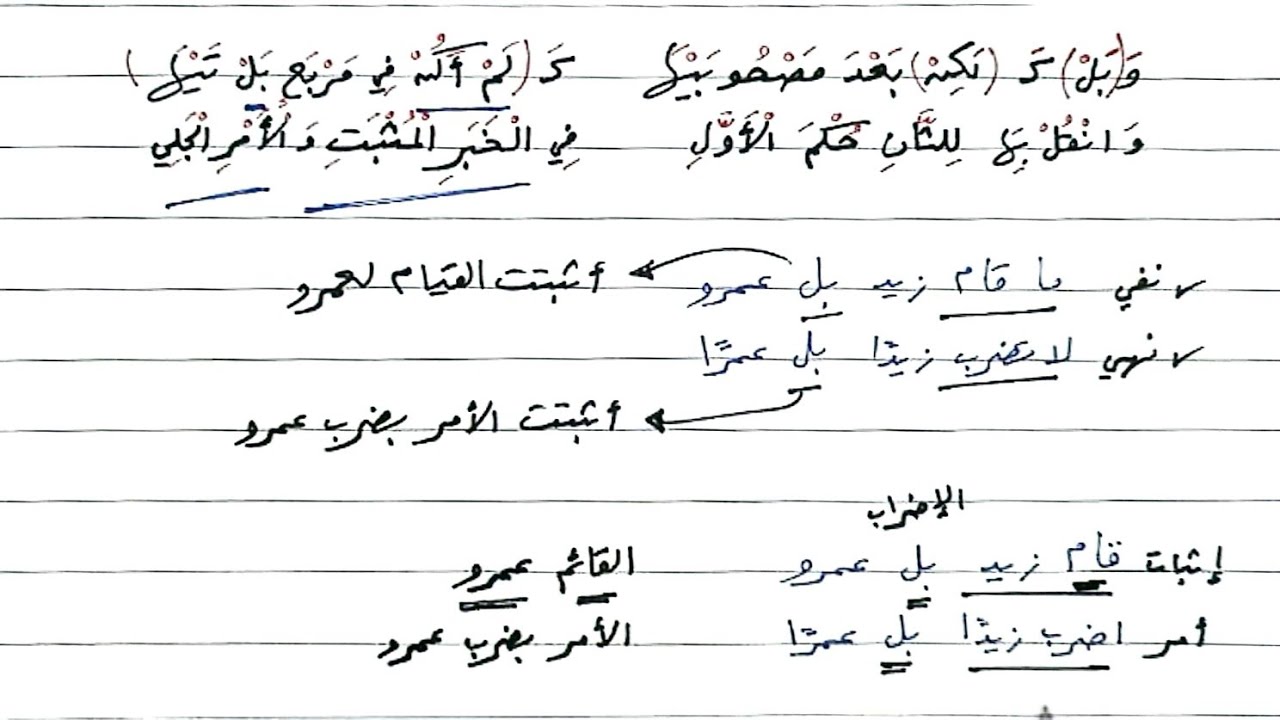 وَ(بَلْ) كَـ (لَكِنْ) بَعْدَ مَصْحُوبَيْهَا كَـ (لَمْ أَكُنْ فِي مَرْبَعٍ بَلْ تَيْهَا)
وَانْقُلْ بِهَا لِلثَّانِ حُكْمَ الْأَوَّلِ فِي الْخَبَرِ الْمُثْبَتِ وَالْأَمْرِ الْجَلِي
نفي ما قام زيد بل عمرو أثبتت القيام لعمرو
نهي لا تضرب زيدًا بل عمرًا
أثبتت الأمر بضرب عمرو
الإضراب
إثبات قام زيد بل عمرو القائم عمرو
أمر اضرب زيدًا بل عمرًا الأمر بضرب عمرو